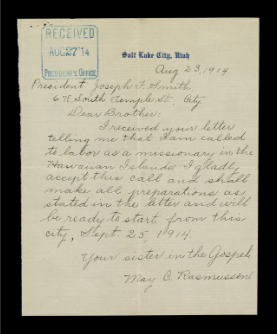 RECEIVED
AUG 27 '14
PRESIDENT'S OFFICE
Salt Lake City, Utah
Aug 23, 1914.
President Joseph F. Smith
67 E South Temple St. City
Dear Brother:
I received your letter
telling me that I am called
to labor as a missionary in the
Hawaiian Islands. I gladly
accept this call and shall
make all preparations as
stated in the letter and will
be ready to start from this
city, Sept. 25, 1914.
Your sister in the Gospel,
May C. Rasmussen